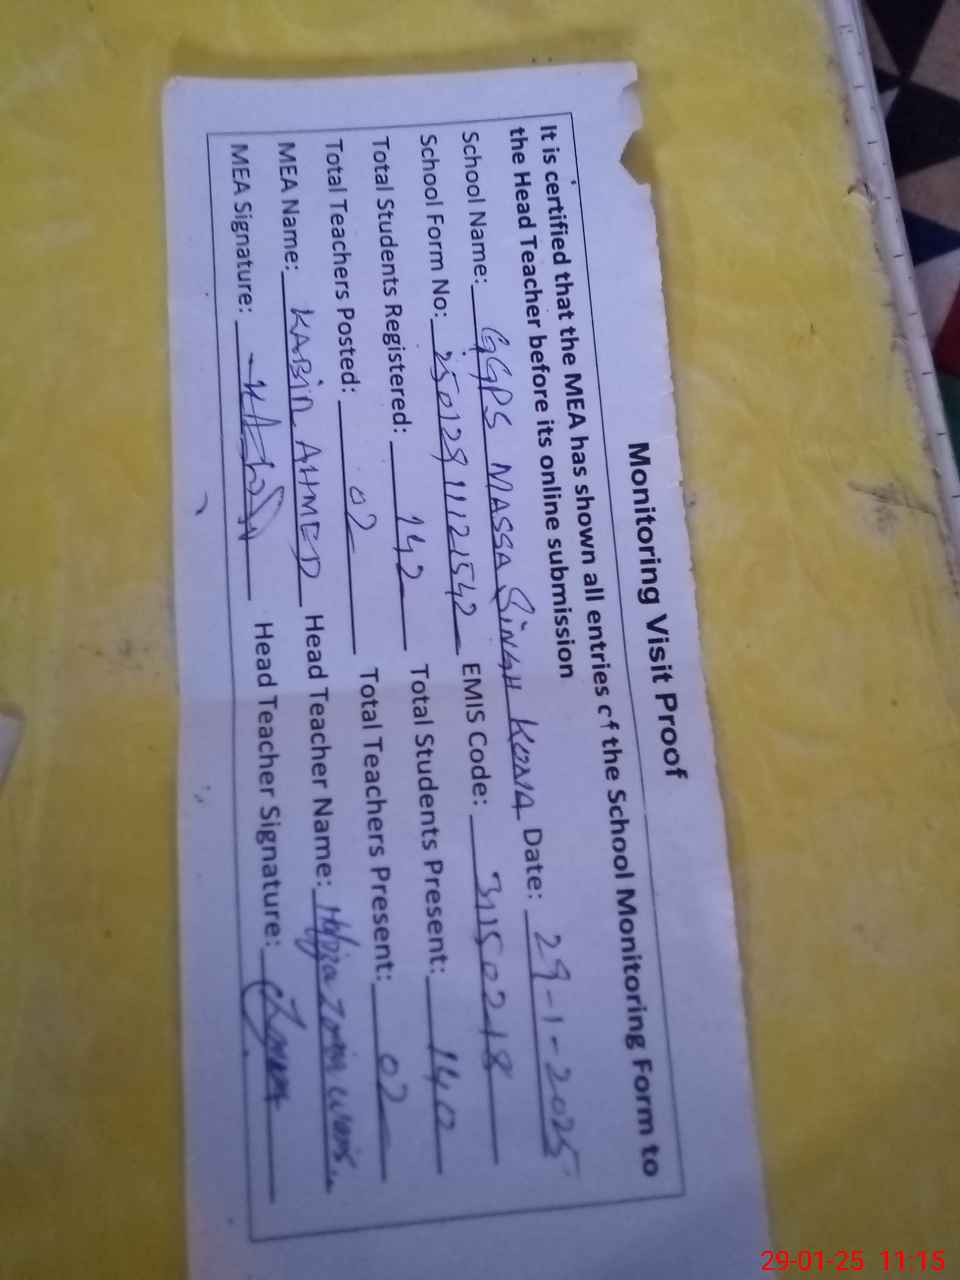 Monitoring Visit Proof
It is certified that the MEA has shown all entries of the School Monitoring Form to
the Head Teacher before its online submission
School Name: GGPS MASSA SINGH KONA Date: 29-1-2025
School Form No: EMIS Code: 31150218
Total Students Registered: 142 Total Students Present: 140
Total Teachers Posted: 02 Total Teachers Present: 02
MEA Name: KABIR AHMED Head Teacher Name:
MEA Signature: Head Teacher Signature:
29-01-25 11:15